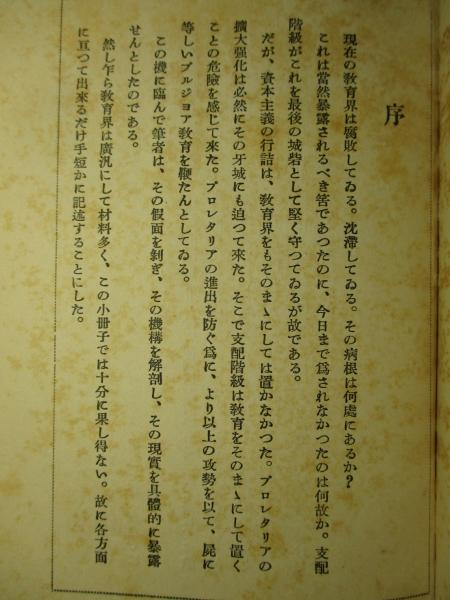 序
現在の敎育界は腐敗してゐる。沈滯してゐる。その病根は何處にあるか?
これは當然暴露されるべき筈であつたのに、今日まで爲されなかつたのは何故か。支配
階級がこれを最後の城砦として堅く守つてゐるが故である。
だが、資本主義の行詰は、敎育界をもそのまゝにしては置かなかつた。プロレタリアの
擴大强化は必然にその牙城にも迫つて來た。そこで支配階級は敎育をそのまゝにして置く
ことの危險を感じて來た。プロレタリアの進出を防ぐ爲に、より以上の攻勢を以て、屍に
等しいブルジョア敎育を鞭たんとしてゐる。
この機に臨んで筆者は、その假面を剝ぎ、その機構を解剖し、その現實を具體的に暴露
せんとしたのである。
然し乍ら敎育界は廣汎にして材料多く、この小冊子では十分に果し得ない。故に各方面
に亘つて出來るだけ手短かに記述することにした。